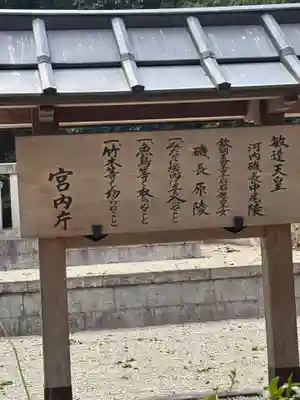 敏達天皇
河内磯長中尾陵
欽明天皇皇女石姫皇女
磯長原陵
一みだりに域内に立ち入らぬこと
一魚鳥等を取らぬこと
一竹木等を切らぬこと
宮内庁